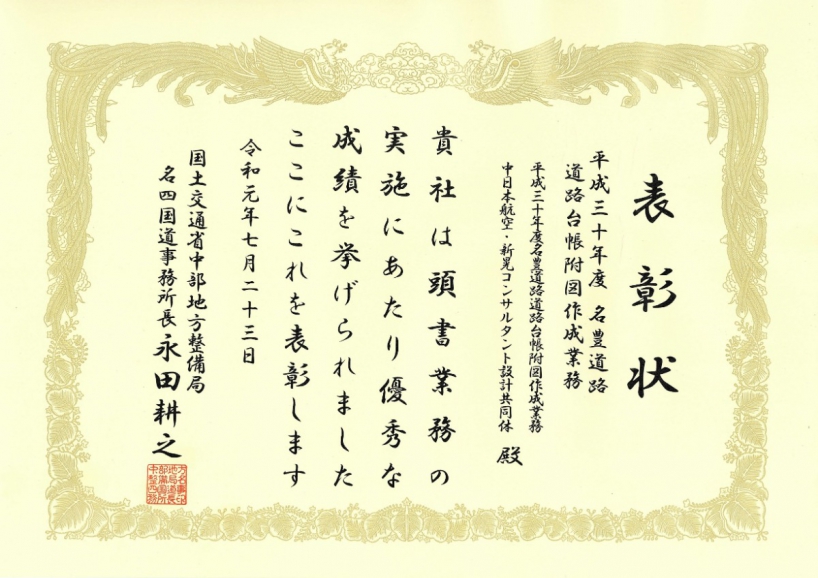 表彰状
平成三十年度 名豊道路
道路台帳附図作成業務
平成三十年度名豊道路道路台帳附図作成業務
中日本航空・新晃コンサルタント設計共同体 殿
貴社は頭書業務の
実施にあたり優秀な
成績を挙げられました
ここにこれを表彰します
令和元年七月二十三日
国土交通省中部地方整備局
名四国道事務所長 永田耕之